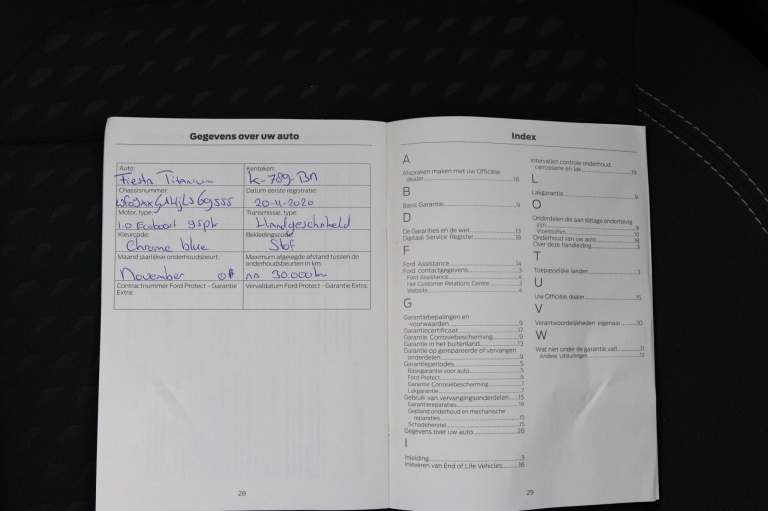 Gegevens over uw auto
Auto:
Fiesta Titanium
Kenteken:
K-789-BN
Chassisnummer:
Datum eerste registratie:
20-11-2020
Motor, type:
1.0 Ecoboost 95pk
Transmissie, type:
Handgeschakeld
Kleurcode:
Chrome blue
Bekledingscode:
Stof
Maand jaarlijkse onderhoudsbeurt:
November of
Maximum afgelegde afstand tussen de
onderhoudsbeurten in km:
na 30.000km
Contractnummer Ford Protect - Garantie
Extra:
Vervaldatum Ford Protect - Garantie Extra:
28
Index
A
Afspraken maken met uw Officiële
dealer 16
B
Basis Garantie 9
D
De Garanties en de wet 13
Digitaal Service Register 18
F
Ford Assistance 14
Ford contactgegevens 3
Ford Assistance 4
Het Customer Relations Centre 3
Website 4
G
Garantiebepalingen en
-voorwaarden 9
Garantiecertificaat 17
Garantie Corrosiebescherming 9
Garantie in het buitenland 13
Garantie op gerepareerde of vervangen
onderdelen 9
Garantieperiodes 5
Basisgarantie voor auto 5
Ford Protect 6
Garantie Corrosiebescherming 7
Lakgarantie 7
Gebruik van vervangingsonderdelen 15
Garantiereparaties 16
Gepland onderhoud en mechanische
reparaties 15
Schadeherstel 15
Gegevens over uw auto 28
I
Inleiding 3
Inleveren van End of Life Vehicles 16
Intervallen controle onderhoud,
carrosserie en lak 19
L
Lakgarantie 9
O
Onderdelen die aan slijtage onderhevig
zijn 9
Vloeistoffen 10
Onderhoud van uw auto 18
Over deze handleiding 3
T
Toepasselijke landen 3
U
Uw Officiële dealer 15
V
Verantwoordelijkheden eigenaar 10
W
Wat niet onder de garantie valt 11
Andere uitsluitingen 12
29